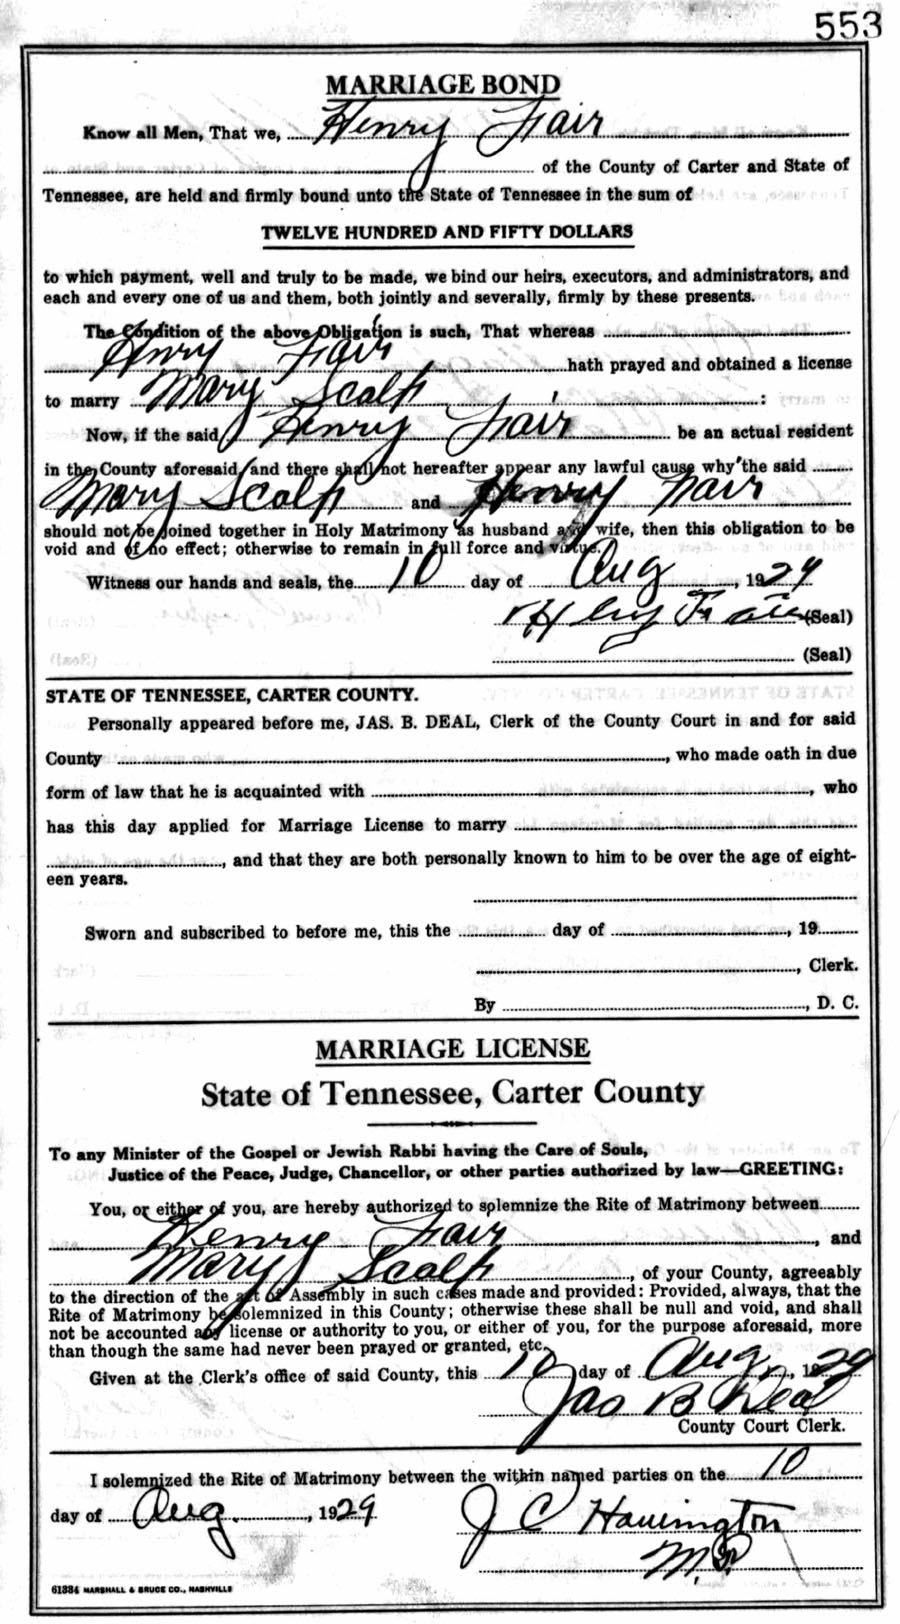 553
MARRIAGE BOND
Know all Men, That we, Henry Fair
of the County of Carter and State of
Tennessee, are held and firmly bound unto the State of Tennessee in the sum of
TWELVE HUNDRED AND FIFTY DOLLARS
to which payment, well and truly to be made, we bind our heirs, executors, and administrators, and
each and every one of us and them, both jointly and severally, firmly by these presents.
The Condition of the above Obligation is such, That whereas
Henry Fair hath prayed and obtained a license
to marry Mary Scalf :
Now, if the said Henry Fair be an actual resident
in the County aforesaid and there shall not hereafter appear any lawful cause why the said
Mary Scalf and Henry Fair
should not be joined together in Holy Matrimony as husband and wife, then this obligation to be
void and of no effect; otherwise to remain in full force and virtue.
Witness our hands and seals, the 10 day of Aug , 1929
(Seal)
(Seal)
STATE OF TENNESSEE, CARTER COUNTY.
Personally appeared before me, JAS. B. DEAL, Clerk of the County Court in and for said
County , who made oath in due
form of law that he is acquainted with , who
has this day applied for Marriage License to marry
, and that they are both personally known to him to be over the age of eight-
een years.
Sworn and subscribed to before me, this the day of , 19
, Clerk.
By , D. C.
MARRIAGE LICENSE
State of Tennessee, Carter County
To any Minister of the Gospel or Jewish Rabbi having the Care of Souls,
Justice of the Peace, Judge, Chancellor, or other parties authorized by law—GREETING:
You, or either of you, are hereby authorized to solemnize the Rite of Matrimony between
Henry Fair , and
Mary Scalf , of your County, agreeably
to the direction of the act of Assembly in such cases made and provided: Provided, always, that the
Rite of Matrimony be solemnized in this County; otherwise these shall be null and void, and shall
not be accounted any license or authority to you, or either of you, for the purpose aforesaid, more
than though the same had never been prayed or granted, etc.
Given at the Clerk's office of said County, this 10 day of Aug. , 1929
Jas B Deal
County Court Clerk.
I solemnized the Rite of Matrimony between the within named parties on the 10
day of Aug. , 1929 J C Hauington
61884 MARSHALL & BRUCE CO., NASHVILLE